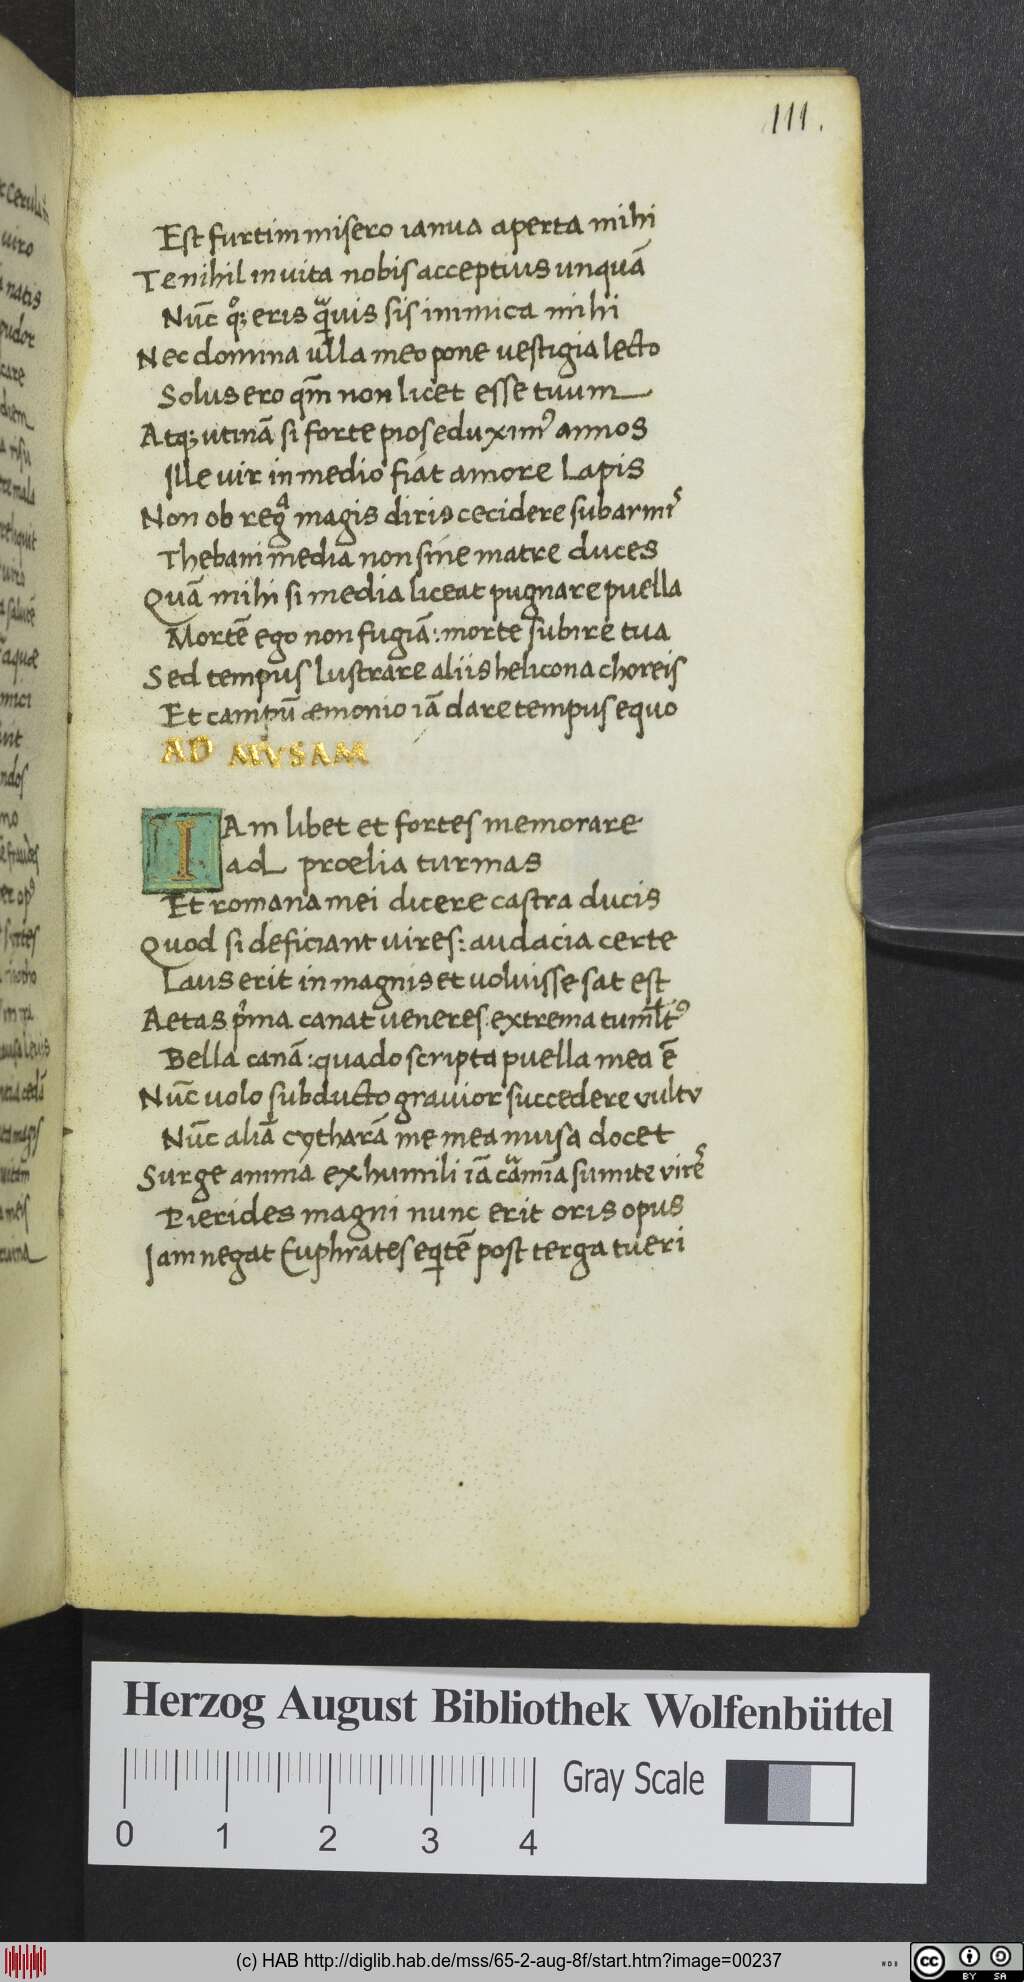 111.
Est furtim misero ianua aperta mihi
Te nihil in uita nobis acceptius unquā
Nūc qͦꝫ eris qͣuis sis inimica mihi
Nec domina ulla meo pone uestigia lecto
Solus ero qm̄ non licet esse tuum
Atqꝫ utinā si forte pios eduximꝰ annos
Ille uir in medio fiat amore Lapis
Non ob regͣ magis diris cecidere sub armis
Thebani media non sine matre duces
Quā mihi si media liceat pugnare puella
Mortē ego non fugiā: morte subire tua
Sed tempus lustrare aliis helicona choreis
Et campū æmonio iā dare tempus equo
AD MVSAM
IAm libet et fortes memorare
ad prœlia turmas
Et romana mei dicere castra ducis
Quod si deficiant uires: audacia certe
Laus erit in magnis et uoluisse sat est
Aetas p̍ma canat ueneres extrema tumltꝰ
Bella canā: quado scripta puella mea ē
Nūc uolo subducto grauior succedere uultu
Nūc aliā cytharā me mea musa docet
Surge anima ex humili iā cͣmīa sumite vires
Pierides magni nunc erit oris opus
Iam negat Euphrates eqͥtē post terga tueri
Herzog August Bibliothek Wolfenbüttel
0 1 2 3 4
Gray Scale
(c) HAB http://diglib.hab.de/mss/65-2-aug-8f/start.htm?image=00237
cc BY SA